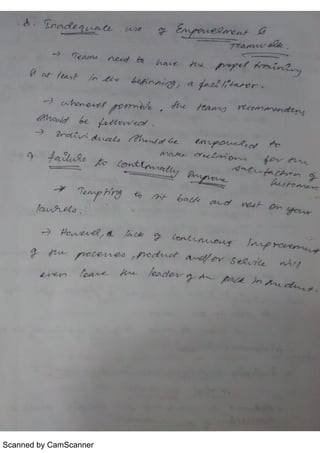 8. Inadequate use of Empowelment &
Teamwork.
→ Teams need to have the propel training
& at least in the beginning, a facilitator.
→ whenevel possible, the teams recommendens
should be followed.
→ Individuals should be empowered to
make decisions for the
satisfaction of
customers
9 failure to continually improve
* Tempting to sit back and rest on your
laurels.
→ However, a lack of continuous improvement
of the processes, product and/or service will
even leave the leader of the pack in the dust.
Scanned by CamScanner